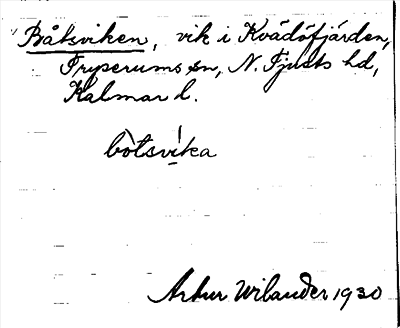 Båtsviken, vik i Kvädöfjärden,
Tryserums sn, N. Tjusts hd,
Kalmar l.
bòtsvíka
Arthur Wilander 1930